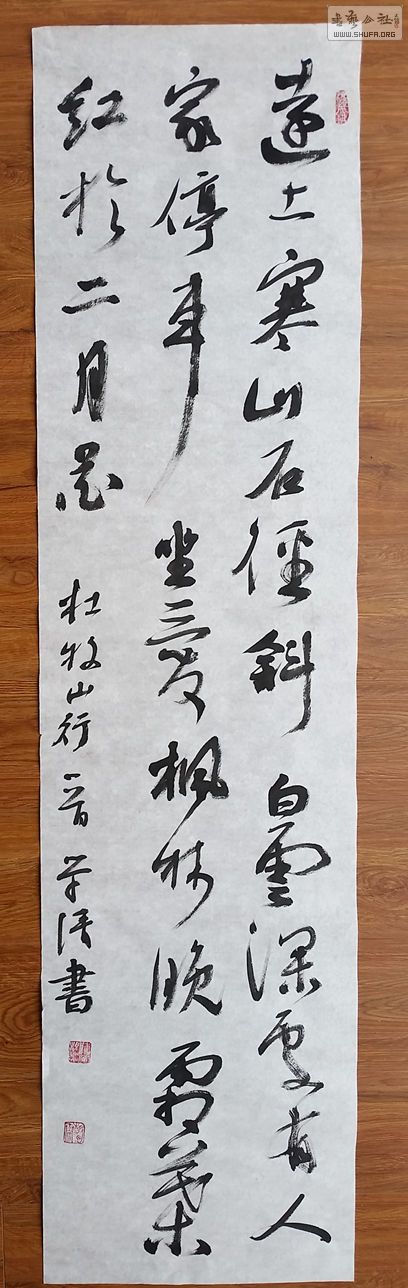 遠上寒山石徑斜白雲深處有人
家停車坐愛楓林晚霜葉
紅於二月花
杜牧山行一首 書
書藝公社
WWW.SHUFA.ORG